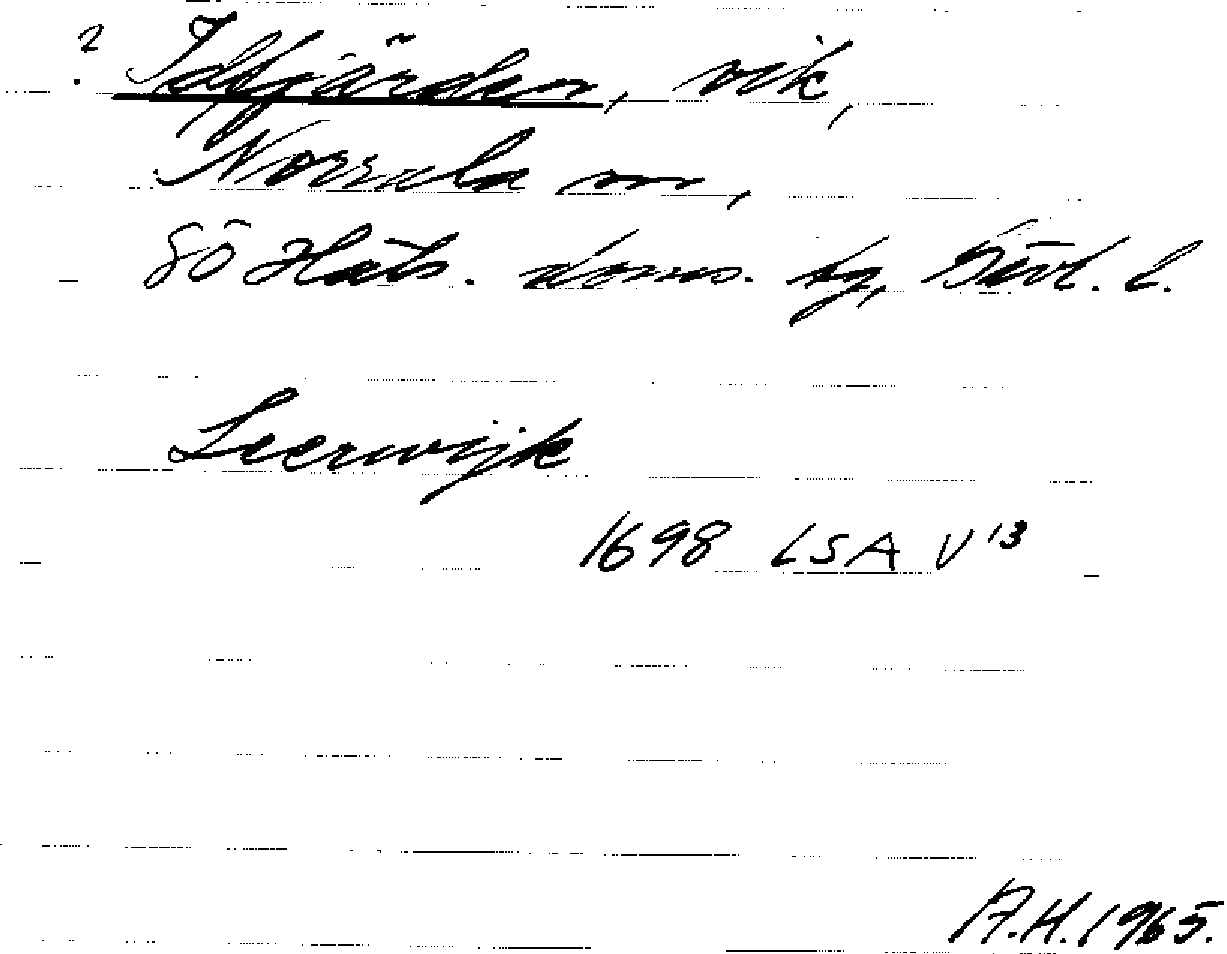 ? Idfjärden, vik,
Norrala sn,
SÖ Häls. doms. tg, Gävl. l.
Leerwijk
1698 LSA V¹³
A.H. 1965.